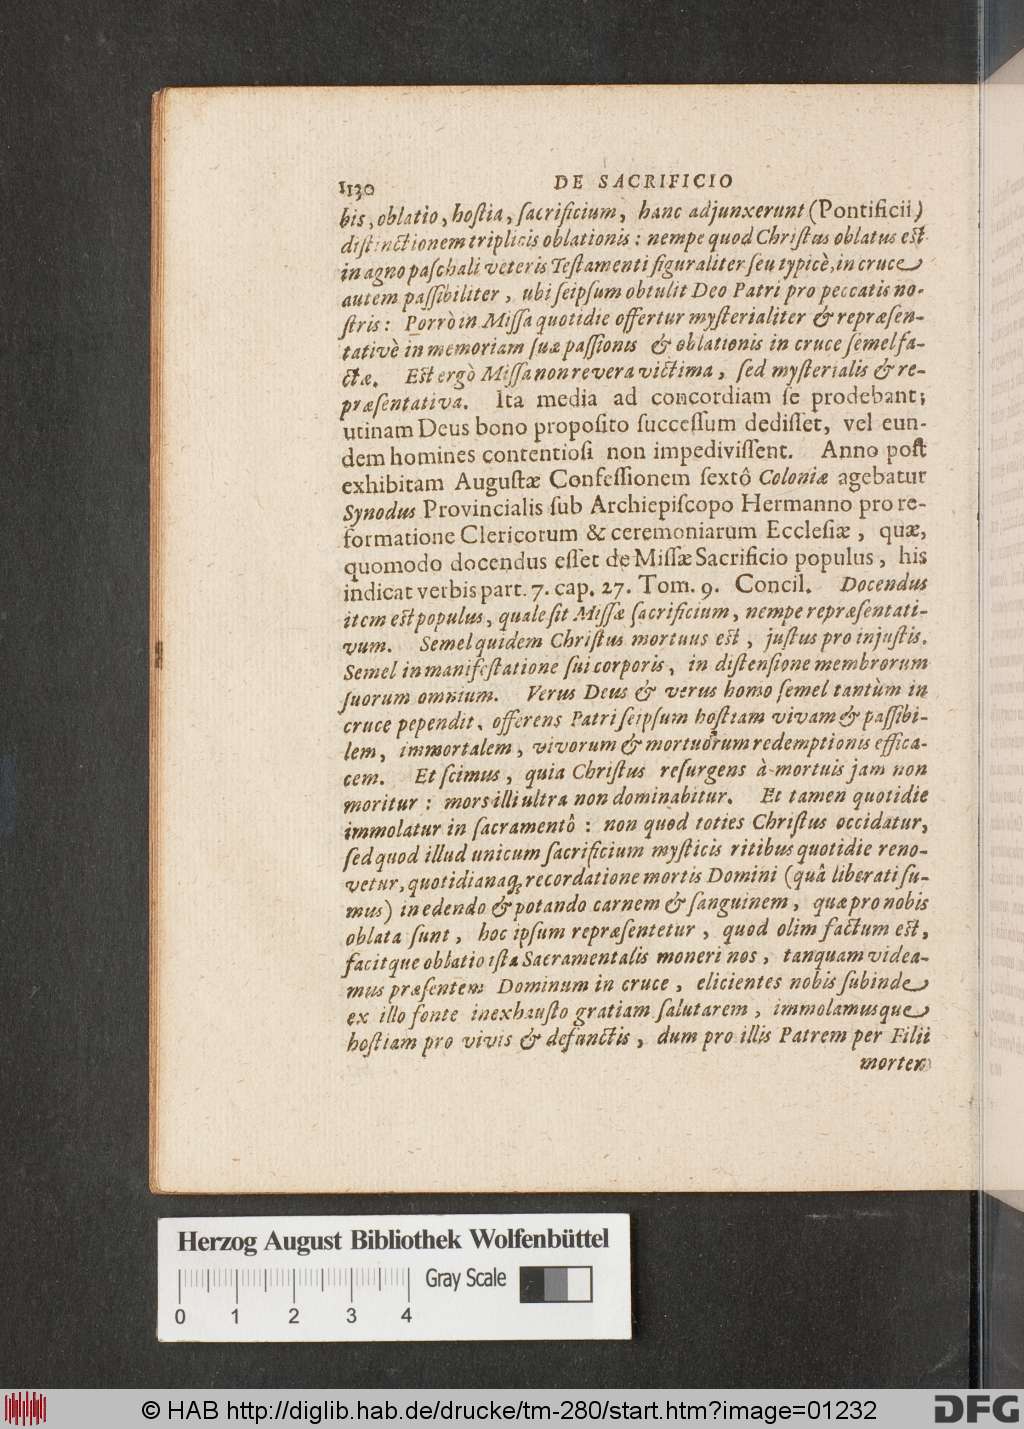 1130 DE SACRIFICIO
bis, oblatio, hoſtia, ſacrificium, hanc adjunxerunt (Pontificii)
diſtinctionem triplicis oblationis : nempe quod Chriſtus oblatus eſt
in agno paſchali veteris Teſtamenti figuraliter ſeu typicè, in cruce
autem paſſibiliter , ubi ſeipſum obtulit Deo Patri pro peccatis no-
ſtris : Porrò in Miſſa quotidie offertur myſterialiter & repræſen-
tativè in memoriam ſuæ paſſionis & oblationis in cruce ſemel fa-
ctæ. Eſt ergò Miſſa non revera victima , ſed myſterialis & re-
præſentativa. Ita media ad concordiam ſe prodebant;
utinam Deus bono propoſito ſucceſſum dediſſet, vel eun-
dem homines contentioſi non impediviſſent. Anno poſt
exhibitam Auguſtæ Confeſſionem ſextô Coloniæ agebatur
Synodus Provincialis ſub Archiepiſcopo Hermanno pro re-
formatione Clericorum & ceremoniarum Eccleſiæ , quæ,
quomodo docendus eſſet de Miſſæ Sacrificio populus , his
indicat verbis part. 7. cap. 27. Tom. 9. Concil. Docendus
item eſt populus, quale ſit Miſſæ ſacrificium, nempe repræſentati-
vum. Semel quidem Chriſtus mortuus eſt , juſtus pro injuſtis.
Semel in manifeſtatione ſui corporis , in diſtenſione membrorum
ſuorum omnium. Verus Deus & verus homo ſemel tantùm in
cruce pependit, offerens Patri ſeipſum hoſtiam vivam & paſſibi-
lem, immortalem , vivorum & mortuorum redemptionis effica-
cem. Et ſcimus , quia Chriſtus reſurgens à mortuis jam non
moritur : mors illi ultra non dominabitur. Et tamen quotidie
immolatur in ſacramentô : non quod toties Chriſtus occidatur,
ſed quod illud unicum ſacrificium myſticis ritibus quotidie reno-
vetur, quotidianaq; recordatione mortis Domini (quâ liberati ſu-
mus) in edendo & potando carnem & ſanguinem , quæ pro nobis
oblata ſunt , hoc ipſum repræſentetur , quod olim factum eſt,
facitque oblatio iſta Sacramentalis moneri nos , tanquam videa-
mus præſentem Dominum in cruce , elicientes nobis ſubinde
ex illo fonte inexhauſto gratiam ſalutarem , immolamusque
hoſtiam pro vivis & defunctis , dum pro illis Patrem per Filii
mortem
Herzog August Bibliothek Wolfenbüttel
Gray Scale
0 1 2 3 4
© HAB http://diglib.hab.de/drucke/tm-280/start.htm?image=01232
DFG